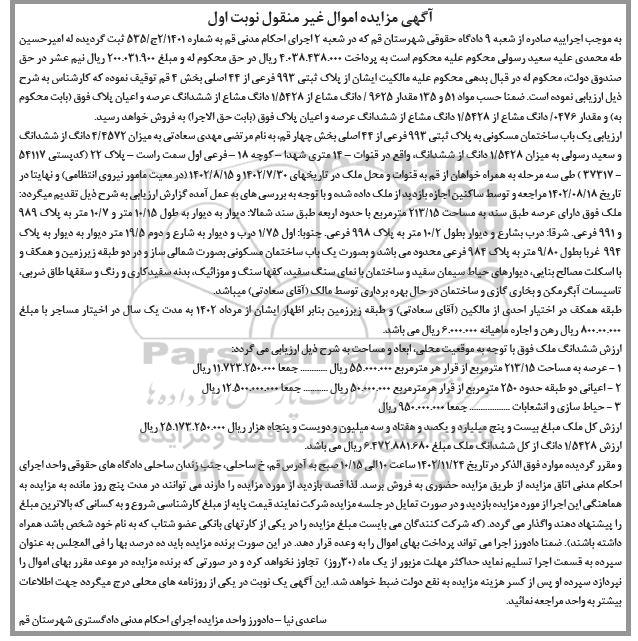 آگهی مزایده اموال غیر منقول نوبت اول
به موجب اجراییه صادره از شعبه ۹ دادگاه حقوقی شهرستان قم که در شعبه ۲ اجرای احکام مدنی قم به شماره ۲/۱۴۰۱ج/۵۳۵ ثبت گردیده له امیرحسین
طه محمدی علیه سعید رسولی محکوم علیه محکوم است به پرداخت ۴.۰۳۸.۴۳۸.۰۰۰ ریال در حق محکوم له و مبلغ ۲۰۰.۰۳۱.۹۰۰ ریال نیم عشر در حق
صندوق دولت، محکوم له در قبال بدهی محکوم علیه مالکیت ایشان از پلاک ثبتی ۹۹۳ فرعی از ۴۴ اصلی بخش ۴ قم توقیف نموده که کارشناس به شرح
ذیل ارزیابی نموده است. ضمنا حسب مواد ۵۱ و ۱۳۵ مقدار ۹۶۲۵ / دانگ مشاع از ۱/۵۴۲۸ دانگ مشاع از ششدانگ عرصه و اعیان پلاک فوق (بابت محکوم
به) و مقدار ۰۴۷۶/ دانگ مشاع از ۱/۵۴۲۸ دانگ مشاع از ششدانگ عرصه و اعیان پلاک فوق (بابت حق الاجرا) به فروش خواهد رسید.
ارزیابی یک باب ساختمان مسکونی به پلاک ثبتی ۹۹۳ فرعی از ۴۴ اصلی بخش چهار قم، به نام مرتضی مهدی سعادتی به میزان ۴/۴۵۷۲ دانگ از ششدانگ
و سعید رسولی به میزان ۱/۵۴۲۸ دانگ از ششدانگ، واقع در قنوات – ۱۴ متری شهدا – کوچه ۱۸ – فرعی اول سمت راست – پلاک ۲۲ (کدپستی ۵۴۱۱۷
– ۳۷۳۱۷) طی سه مرحله به همراه خواهان از قم به قنوات و محل ملک در تاریخهای ۱۴۰۲/۷/۳۰ و ۱۴۰۲/۸/۱۵ (در معیت مامور نیروی انتظامی) و نهایتا در
تاریخ ۱۴۰۲/۰۸/۱۸ مراجعه و توسط ساکنین اجازه بازدید از ملک داده شده و با توجه به بررسی های به عمل آمده گزارش ارزیابی به شرح ذیل تقدیم میگردد:
ملک فوق دارای عرصه طبق سند به مساحت ۲۱۳/۱۵ مترمربع با حدود اربعه طبق سند شمالا: دیوار به دیوار به طول ۱۰/۱۵ متر و ۱۰/۷ متر به پلاک ۹۸۹
و ۹۹۱ فرعی. شرقا: درب بشارع و دیوار بطول ۱۰/۲ متر به پلاک ۹۹۸ فرعی. جنوبا: اول ۱/۷۵ درب و دیوار به شارع و دوم ۱۹/۵ متر دیوار به دیوار به پلاک
۹۹۴ غربا بطول ۹/۸۰ متر به پلاک ۹۸۴ فرعی محدود می باشد و بصورت یک باب ساختمان مسکونی بصورت شمالی ساز و در دو طبقه زیرزمین و همکف و
با اسکلت مصالح بنایی، دیوارهای حیاط سیمان سفید و ساختمان با نمای سنگ سفید، کفها سنگ و موزائیک، بدنه سفیدکاری و رنگ و سقفها طاق ضربی،
تاسیسات آبگرمکن و بخاری گازی و ساختمان در حال بهره برداری توسط مالک (آقای سعادتی) میباشد.
طبقه همکف در اختیار احدی از مالکین (آقای سعادتی) و طبقه زیرزمین بنابر اظهار ایشان از مرداد ۱۴۰۲ به مدت یک سال در اختیار مساجر با مبلغ
۸۰۰.۰۰۰.۰۰۰ ریال رهن و اجاره ماهیانه ۶.۰۰۰.۰۰۰ ریال می باشد.
ارزش ششدانگ ملک فوق با توجه به موقعیت محلی، ابعاد و مساحت به شرح ذیل ارزیابی می گردد:
۱ – عرصه به مساحت ۲۱۳/۱۵ مترمربع از قرار هر مترمربع ۵۵.۰۰۰.۰۰۰ ریال ............ جمعا ۱۱.۷۲۳.۲۵۰.۰۰۰ ریال
۲ – اعیانی دو طبقه حدود ۲۵۰ مترمربع از قرار هرمترمربع ۵۰.۰۰۰.۰۰۰ ریال ............ جمعا ۱۲.۵۰۰.۰۰۰.۰۰۰ ریال
۳ – حیاط سازی و انشعابات .................. جمعا ۹۵۰.۰۰۰.۰۰۰ ریال
ارزش کل ملک مبلغ بیست و پنج میلیارد و یکصد و هفتاد و سه میلیون و دویست و پنجاه هزار ریال ۲۵.۱۷۳.۲۵۰.۰۰۰ ریال
ارزش ۱/۵۴۲۸ دانگ از کل ششدانگ ملک مبلغ ۶.۴۷۲.۸۸۱.۶۸۰ ریال می باشد.
و مقرر گردیده موارد فوق الذکر در تاریخ ۱۴۰۲/۱۱/۲۴ ساعت ۱۰ الی ۱۰/۱۵ صبح به آدرس قم، خ ساحلی، جنب زندان ساحلی دادگاه های حقوقی واحد اجرای
احکام مدنی اتاق مزایده از طریق مزایده حضوری به فروش برسد. لذا قصد بازدید از مورد مزایده را دارند می توانند در مدت پنج روز مانده به مزایده به
هماهنگی این اجرا از مورد مزایده بازدید و در صورت تمایل در جلسه مزایده شرکت نمایند قیمت پایه از مبلغ کارشناسی شروع و به کسانی که بالاترین مبلغ
را پیشنهاد دهند واگذار می گردد. (که شرکت کنندگان می بایست مبلغ مزایده را در یکی از کارتهای بانکی عضو شتاب که به نام خود شخص باشد همراه
داشته باشند). ضمنا دادورز اجرا می تواند پرداخت بهای اموال را به وعده قرار دهد. در این صورت برنده مزایده باید ده درصد بها را فی المجلس به عنوان
سپرده به قسمت اجرا تسلیم نماید حداکثر مهلت مزبور از یک ماه (۳۰روز) تجاوز نخواهد کرد و در صورتی که برنده مزایده در موعد مقرر بهای اموال را
نپردازد سپرده او پس از کسر هزینه مزایده به نفع دولت ضبط خواهد شد. این آگهی یک نوبت در یکی از روزنامه های محلی درج میگردد جهت اطلاعات
بیشتر به واحد مراجعه نمائید.
ساعدی نیا – دادورز واحد مزایده اجرای احکام مدنی دادگستری شهرستان قم
ParsNamadData